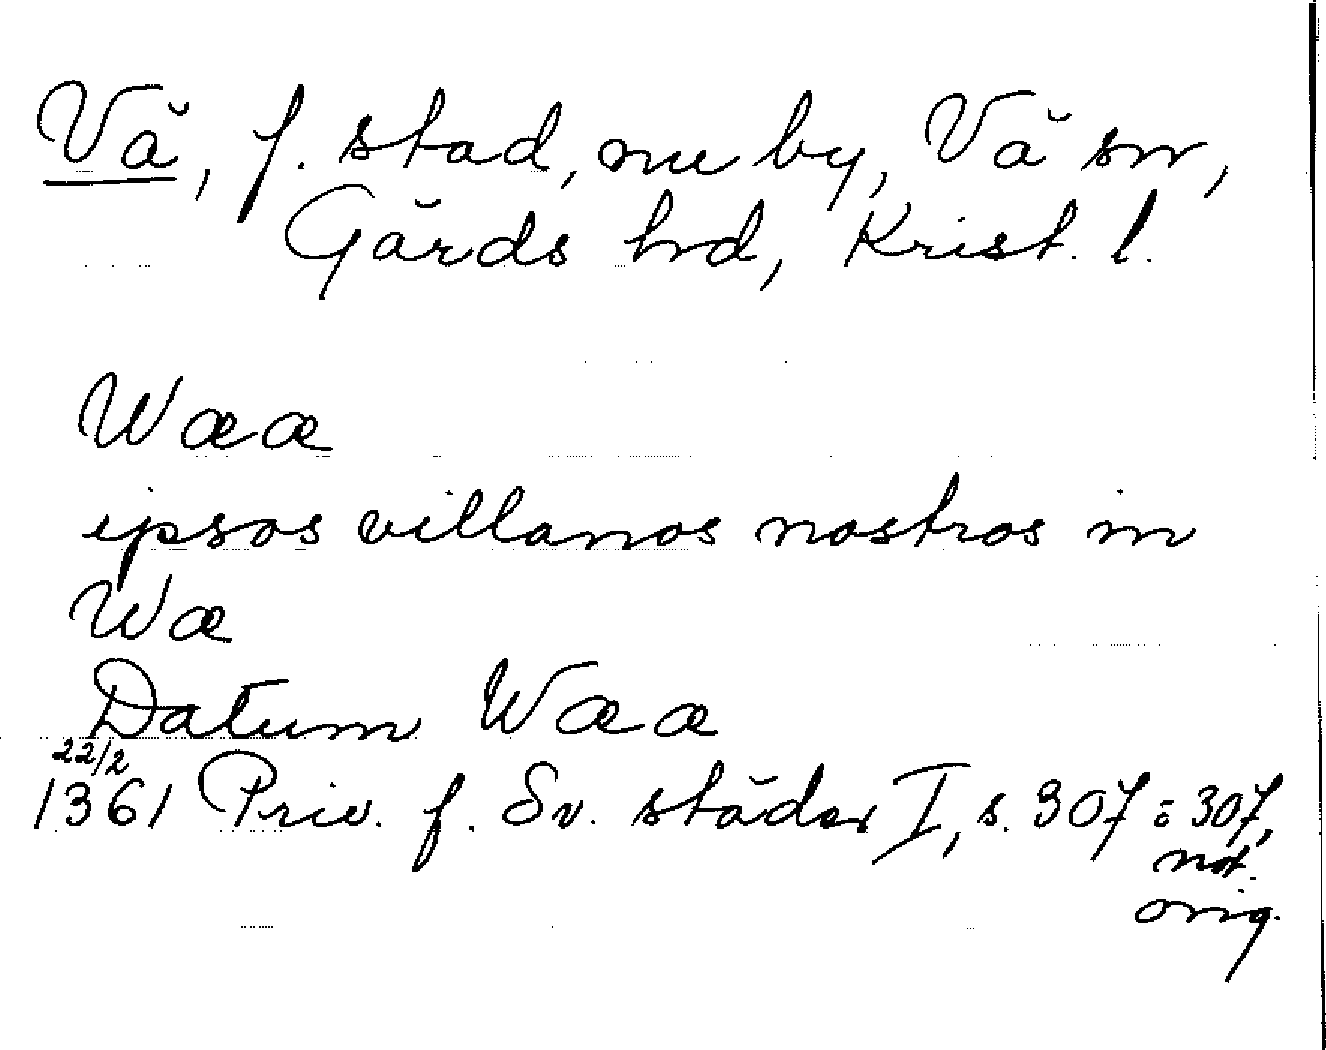 Vä, f. stad, nu by, Vä sn,
Gärds hd, Krist. l.
Wææ
ipsos villanos nostros in
Wæ
Datum Wææ
22/2
1361 Priv. f. Sv. städer I, s. 307 : 307,
not.
orig.